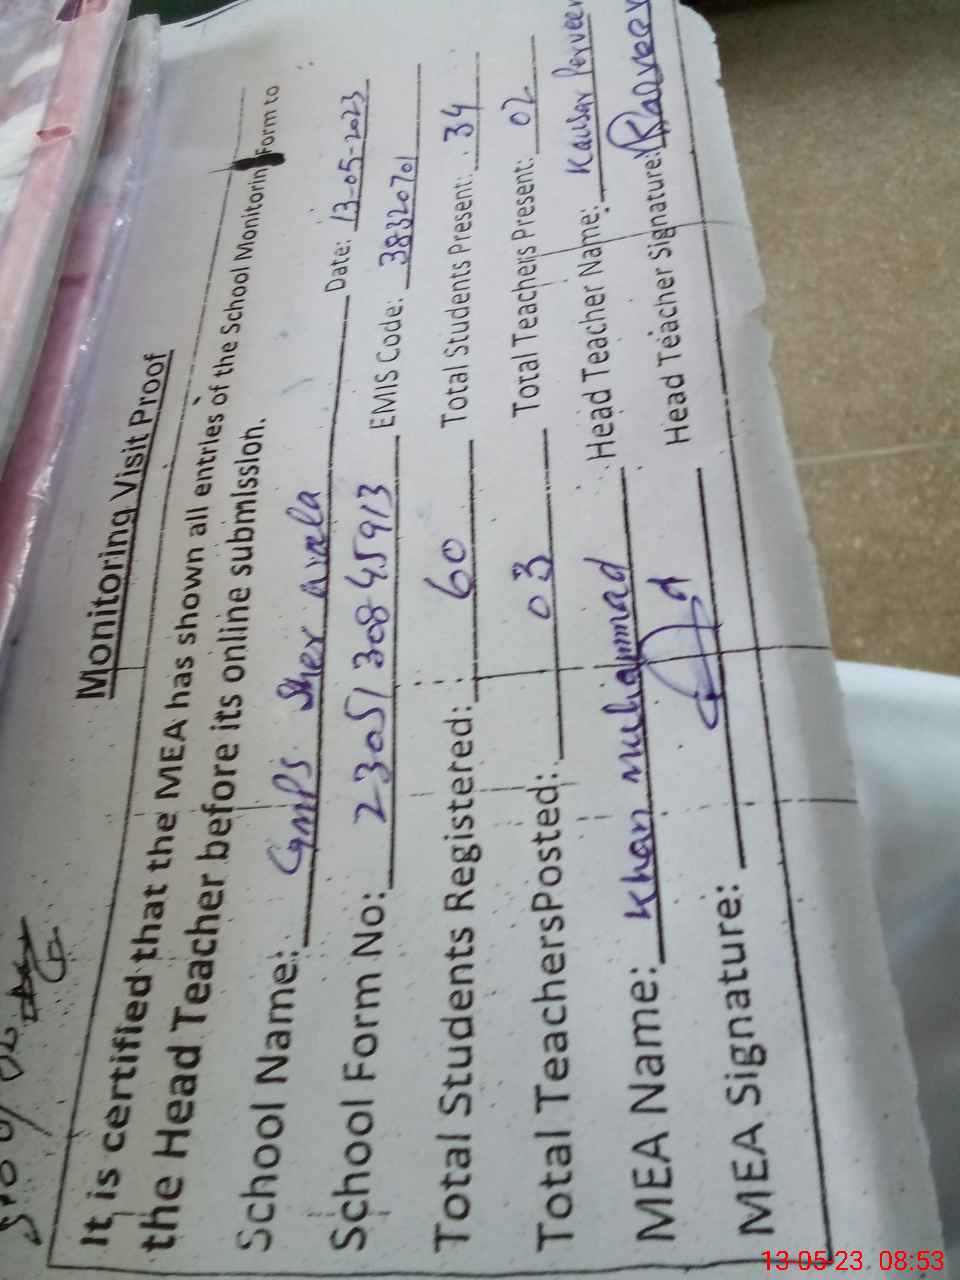 Monitoring Visit Proof
It is certified that the MEA has shown all entries of the School Monitoring Form to
the Head Teacher before its online submission.
School Name: GMPS Sher Arala Date: 13-05-2023
School Form No: 2305130845913 EMIS Code: 38320701
Total Students Registered: 60 Total Students Present: 34
Total TeachersPosted: 03 Total Teachers Present: 02
MEA Name: Khan Muhammad Head Teacher Name: Kausar Perveen
MEA Signature: Head Teacher Signature:
13-05-23 08:53